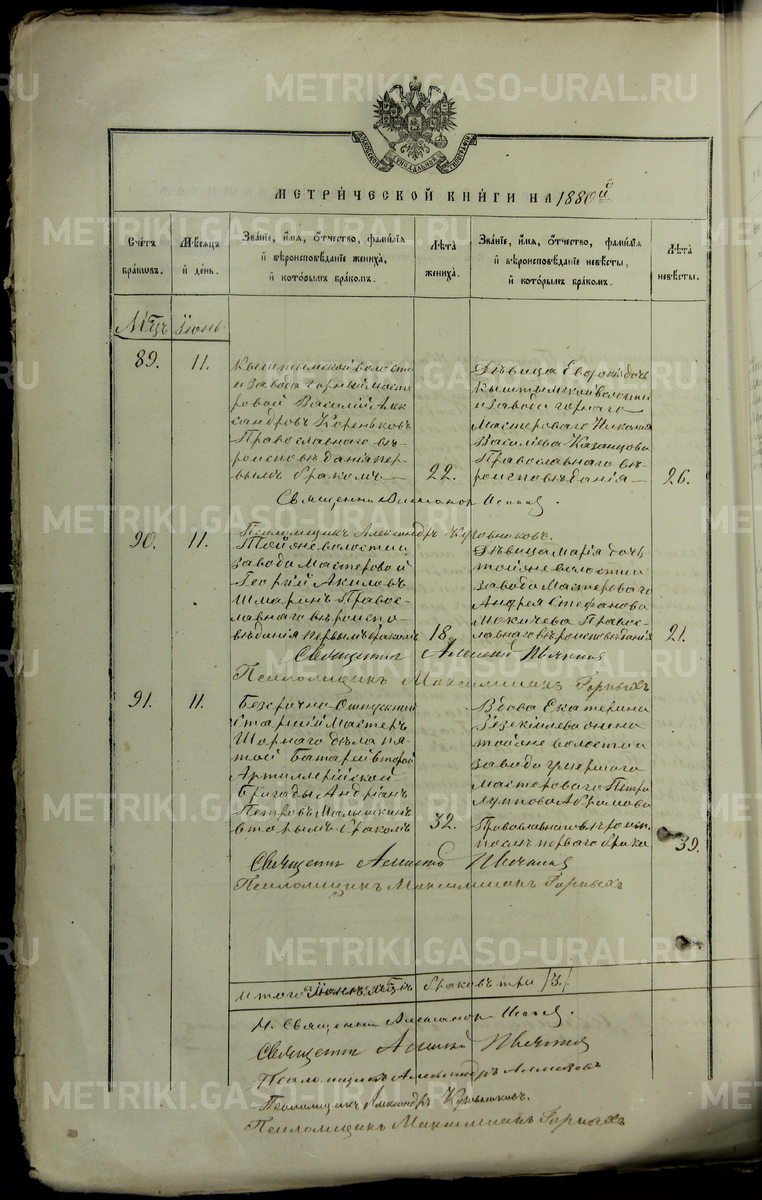 МЕТРИ́ЧЕСКОЙ КНИ́ГИ НА 1880й
Сче́тъ бра́кѡвъ.
Мѣ́сяцъ и҆ де́нь.
Зва́нїе, и҆́мя, ѻ҆́тчество, фамѝлїя и҆ вѣроисповѣ́данїе жениха̀, и҆ кото́рымъ бра́комъ.
Лѣ́та жениха̀.
Зва́нїе, и҆́мя, ѻ҆́тчество, фамѝлїя и҆ вѣроисповѣ́данїе невѣ́сты, и҆ кото́рымъ бра́комъ.
Лѣ́та невѣ́сты.
Мцъ Іюнь
89.
11.
Кыштымской волости
и завода горный масте
ровой Василій Алек
сандровъ Кореньковъ
Православнаго вѣ
роисповѣданія пер
вымъ бракомъ
22.
Дѣвица дочь
Кыштымской волости
и завода горнаго
мастероваго Николая
Васильева Казанцова
Православнаго вѣ-
роисповѣданія
26.
Священникъ
Псаломщикъ Александръ
90.
11.
Тойже волости и
завода мастеровой
Георгій Акиловъ
Шмаринъ Правос-
лавнаго вѣроиспо-
вѣданія первымъ бракомъ
18.
Дѣвица Марія дочь
тойже волости и
завода мастероваго
Андрея Стефанова
Мокичева Правос-
лавнаго вѣроисповѣданія
21.
Священникъ Алексѣй
Псаломщикъ Максимиліанъ Горныхъ
91.
11.
Безсрочно-Отпускной
старшій мастеръ
Шорнаго дѣла пя-
той Батареи второй
Артиллерійской
Бригады Андріанъ
Петровъ Малышкинъ
вторымъ бракомъ
32.
Вдова Екатерина
Іезекіилева жена
тойже волости и
завода умершаго
мастероваго Петра
Абрамова
Православнаго вѣроисп.
послѣ перваго брака
39.
Священникъ Алексѣй
Псаломщикъ Максимиліанъ Горныхъ
Итого Іюнѣ мцѣ браковъ три /3./
Священникъ
Священникъ Алексѣй
Псаломщикъ Александръ
Псаломщикъ Александръ
Псаломщикъ Максимиліанъ Горныхъ
METRIKI.GASO-URAL.RU